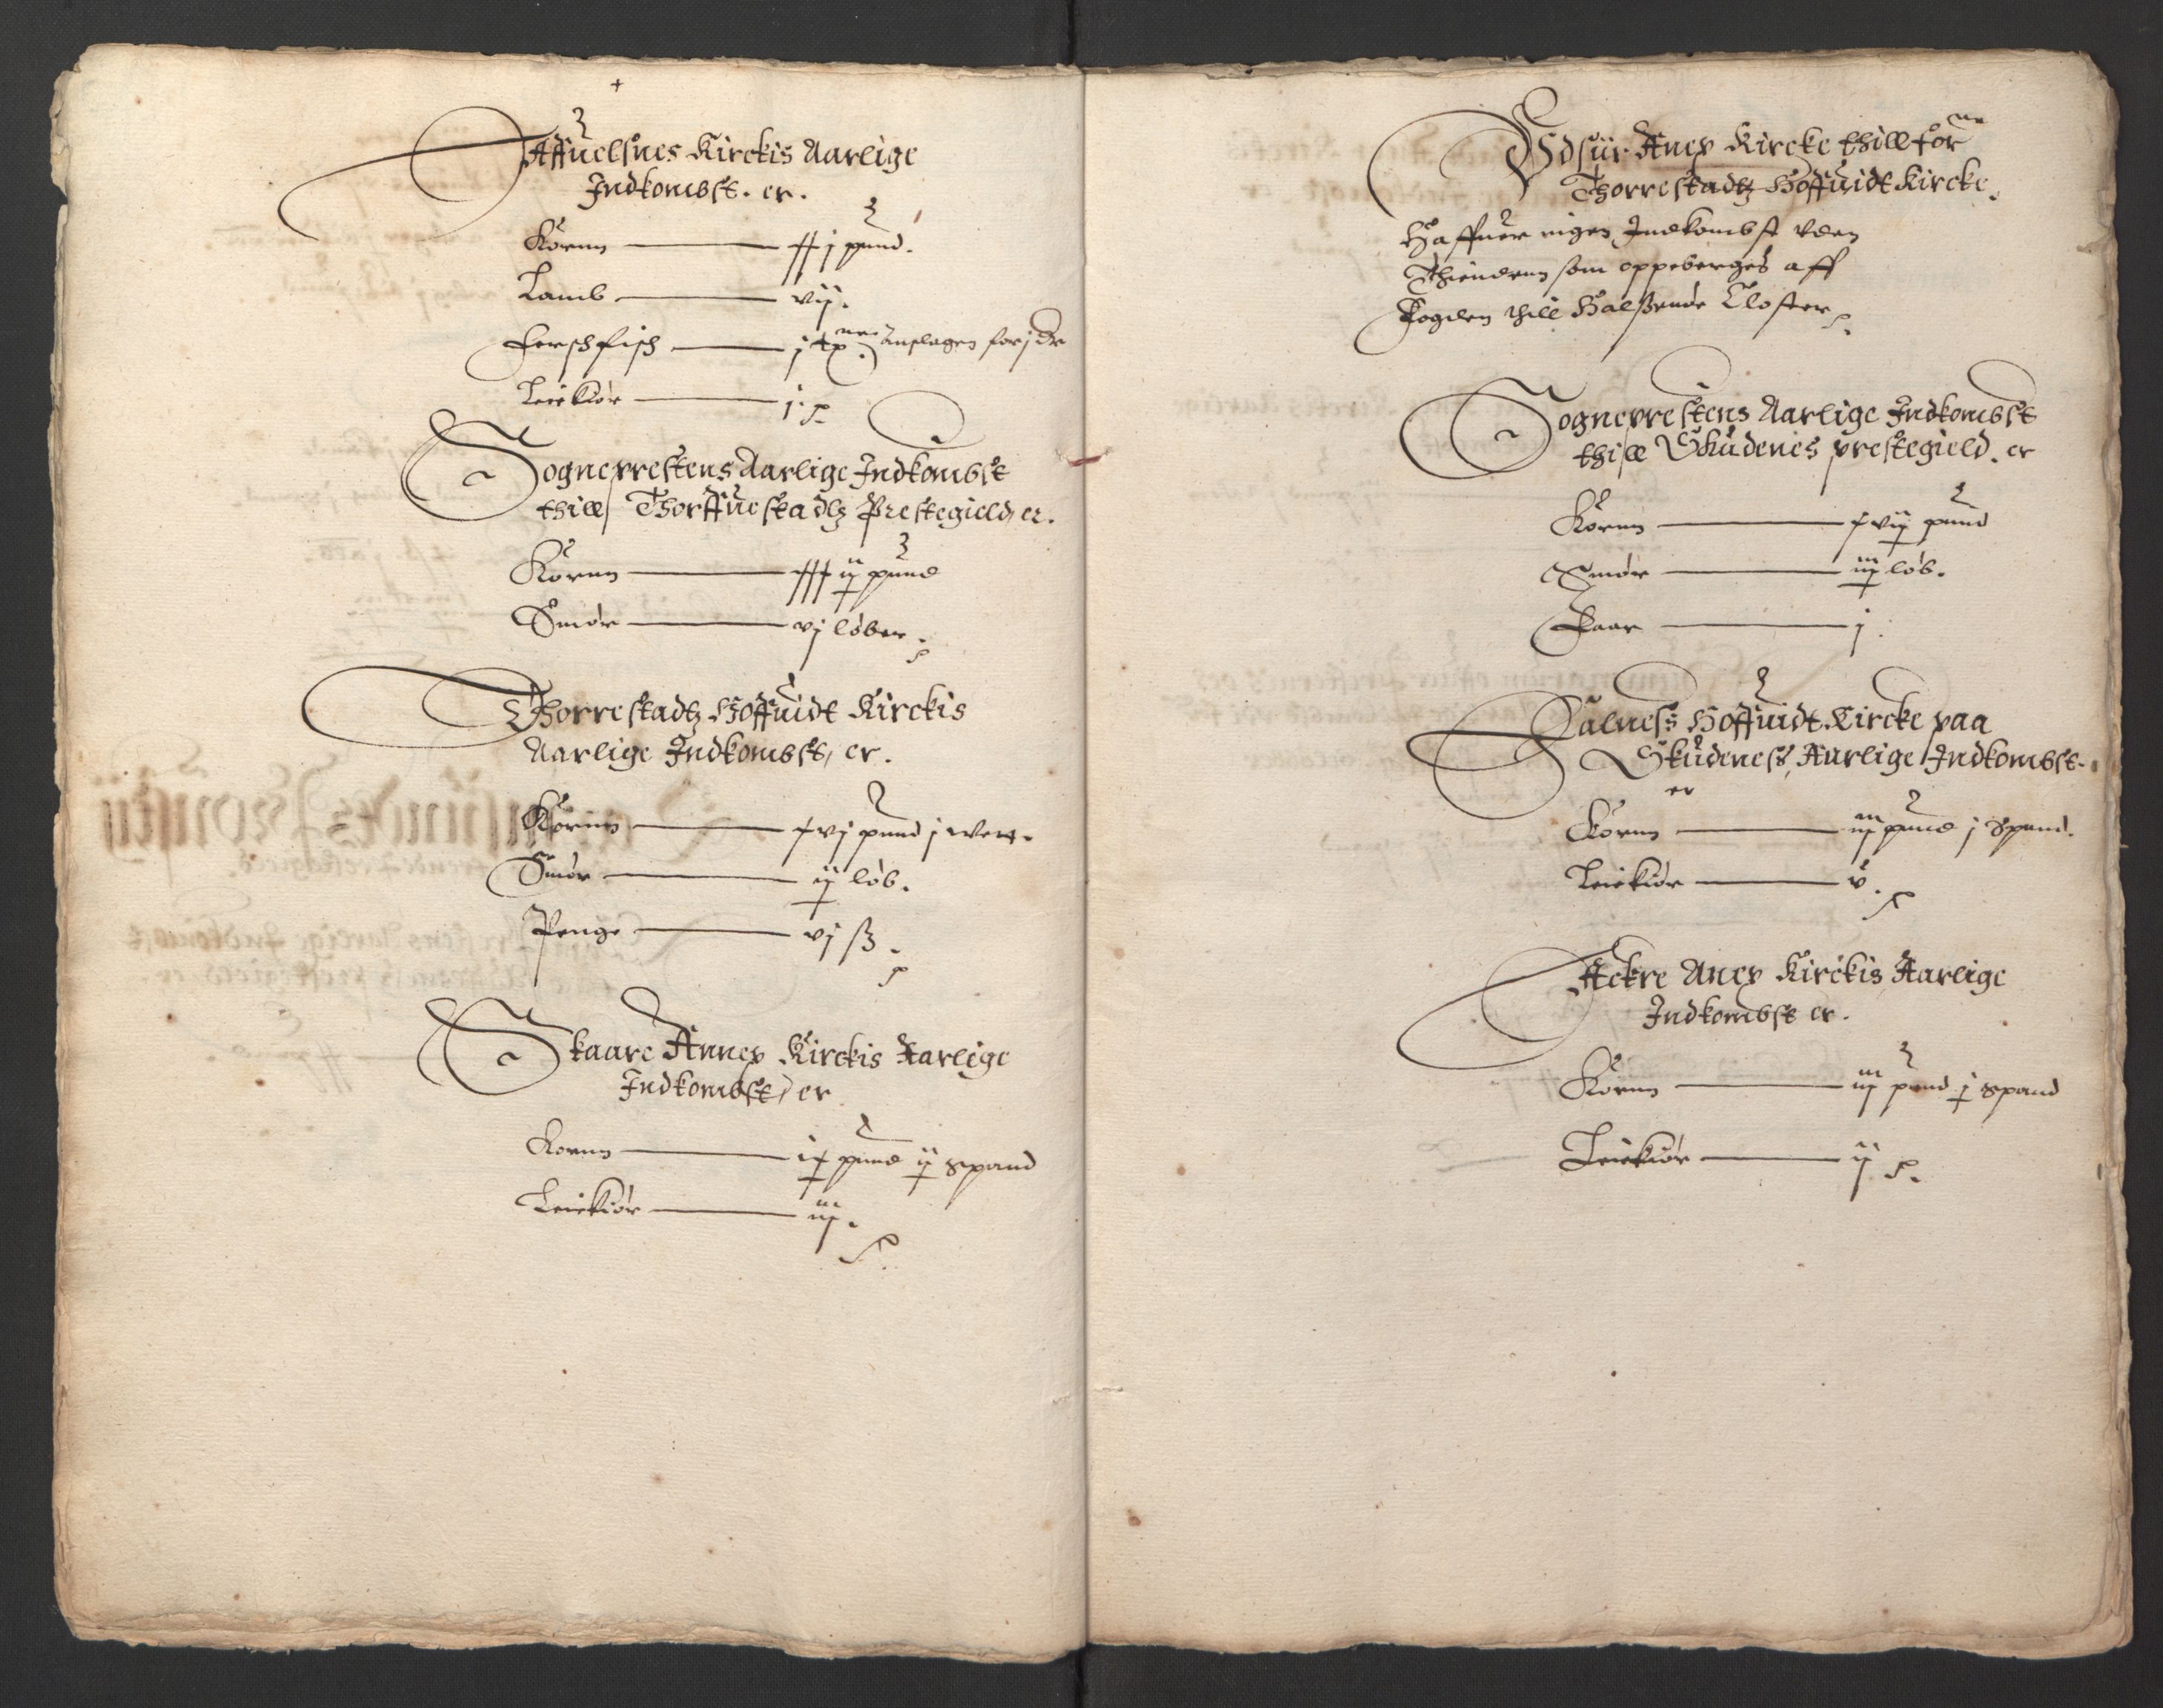 Affuelsnes Kirckis Aarlige
Indkombst. er.
Kornn — xxj pund.
Lamb — vij.
Ferschfisch — j tønne anslagen for j dr
Leiekiør — j.
Sogneprestens Aarlige Indkombst
thill Thorffuestadtz Prestegield, er.
Kornn — xxxij pund
Smør — vj løber.
Thorrestadtz Hoffuidt Kirckis
Aarlige Indkombst, er.
Kornn — xvj pund j
Smør — ij løb.
Penge — vj ß.
Skaare Annex Kirckis Aarlige
Indkombst, er
Kornn — ix pund ij spand
Leiekiør — iij.
Vdsiir Anex Kircke thill forne
Thorrestadtz Hoffuidt Kircke.
Haffuer ingen Indkombst vden
Thienden som oppeberges aff
Fogden thill Halssende Closter
Sogneprestens Aarlige Indkombst
thill Skudenies prestegield. er
Kornn — xvij pund
Smør — iij løb.
Faar — j.
Falness Hoffuidt Kircke paa
Skudeness, Aarlige Indkombst.
er
Kornn — iij pund j Spand.
Leiekiør — v.
Ackre Anex Kirckis Aarlige
Indkombst er.
Kornn — iij pund j spand
Leiekiør — ij